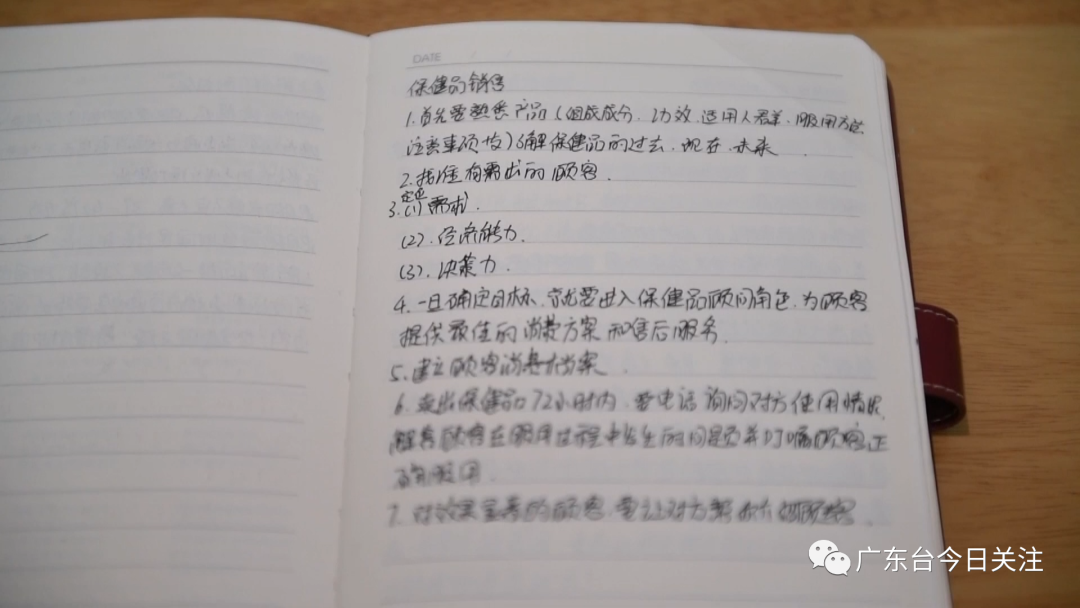 DATE
保健品销售
1.首先要熟悉产品(组成成分、功效、适用人群、服用方法
注意事项等)了解保健品的过去、现在、未来
2.找准有需求的顾客.
定位
3.(1)需求.
(2).经济能力.
(3).决策力.
4.一旦确定目标.就要进入保健品顾问角色.为顾客
提供最佳的消费方案和售后服务.
5.建立顾客消费档案.
6.卖出保健品72小时内.要电话询问对方使用情况.
解答顾客在服用过程中发生的问题并叮嘱顾客正
确服用.
7.对效果显著的顾客.要让对方帮你介绍顾客.
广东台今日关注